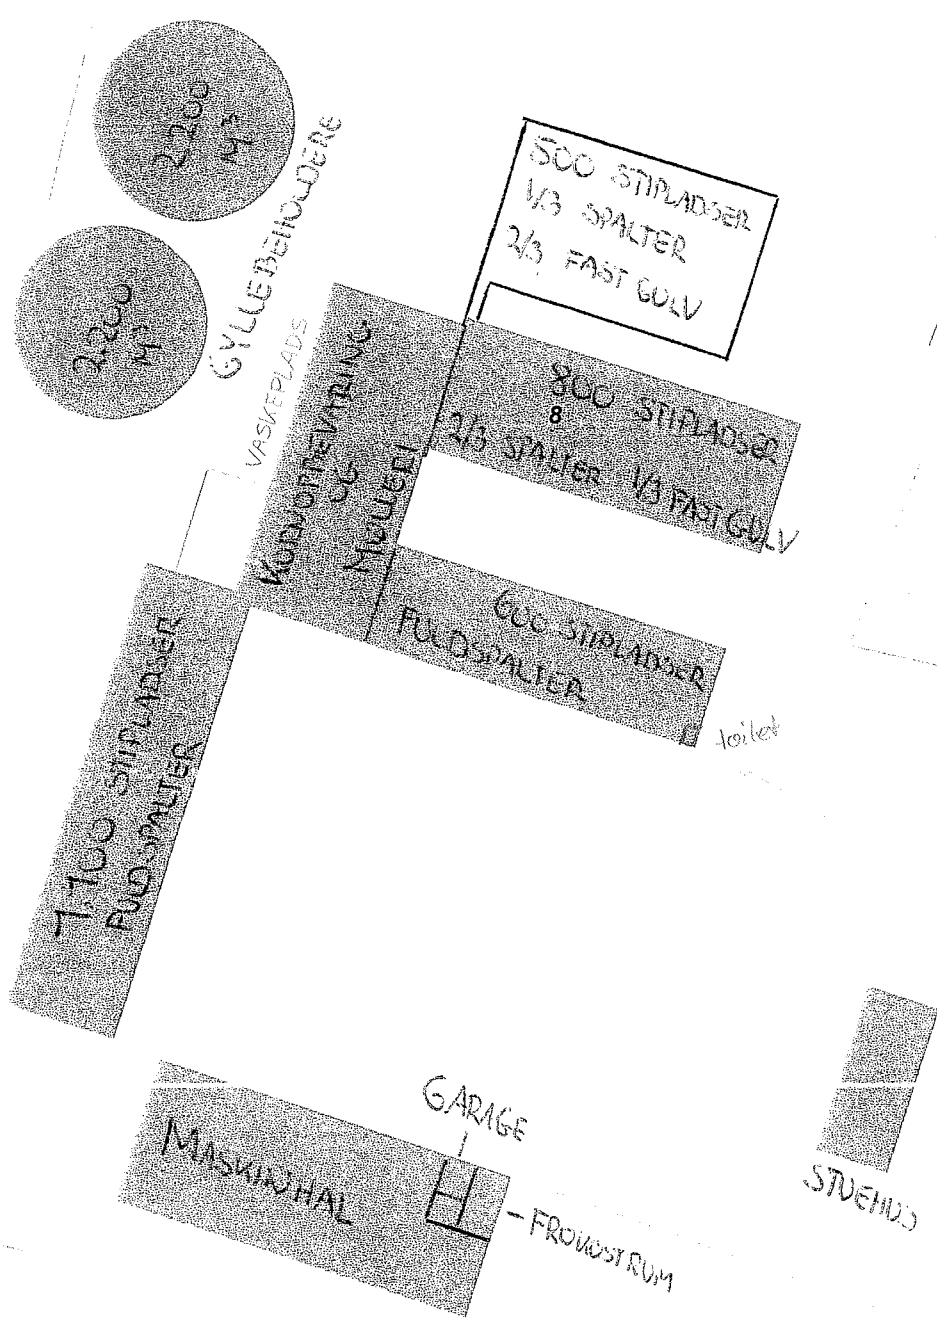 2.200
M³
GYLLEBEHOLDERE
2.200
M³
VASKEPLADS
500 STIPLADSER
1/3 SPALTER
2/3 FAST GULV
KORNOPBEVARING
OG
MØLLERI
800 STIPLADSER
8
2/3 SPALTER 1/3 FAST GULV
600 STIPLADSER
FULDSPALTER
toilet
1.100 STIPLADSER
FULDSPALTER
MASKINHAL
GARAGE
- FROKOSTRUM
STUEHUS